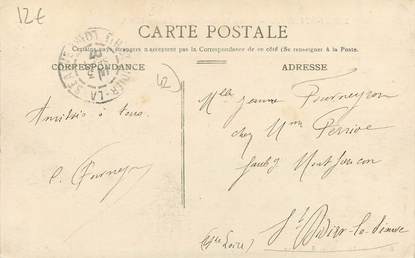 12€
CARTE POSTALE
Certains pays étrangers n'acceptent pas la Correspondance de ce côté (Se renseigner à la Poste.
CORRESPONDANCE
ADRESSE
42
Mlle Jeanne Fourneyron
chez Mme Perrive
faubg Montfaucon
St Didier-la-Séauve
(Hte Loire)
Amitiés à tous
C. Fourney